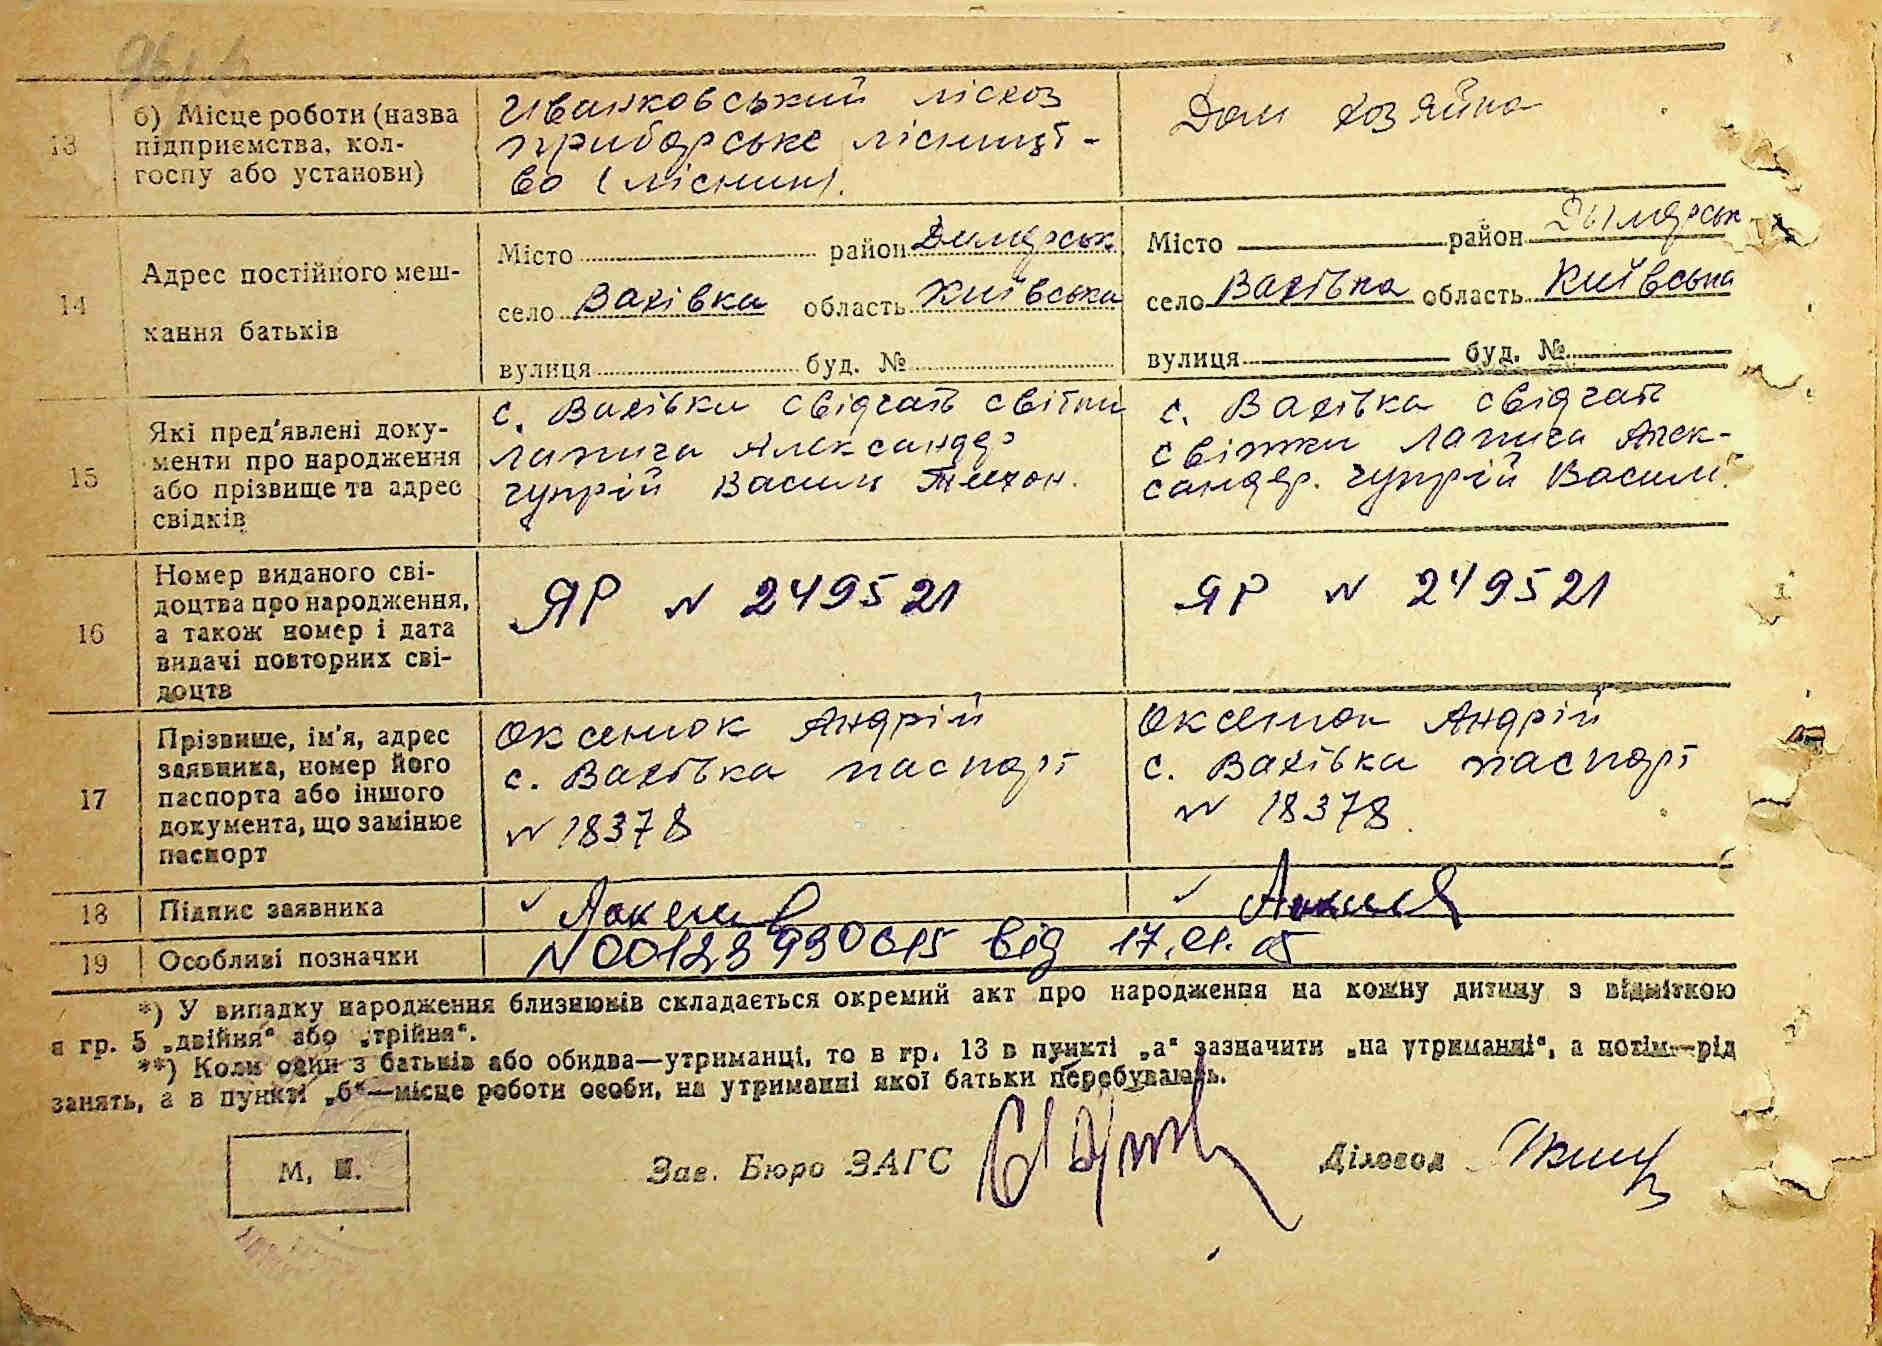 13
б) Місце роботи (назва
підприємства, кол-
госпу або установи)
Иванковський лісхоз
приборське лісницт-
во (лісник).
Дом хозяйка
14
Адрес постійного меш-
кання батьків
Місто район Димерськ
село Вахівка область Київська
вулиця буд. №
Місто район Дымерськ
село Вахівка область Київська
вулиця буд. №
15
Які пред'явлені доку-
менти про народження
або прізвище та адрес
свідків
с. Вахівки свідчать свідки
Лапича Александр
Чупрій Васили Тихон.
с. Вахівка свідчать
свідки Лапича Алек-
сандр. Чупрій Василі
16
Номер виданого сві-
доцтва про народження,
а також номер і дата
видачі повторних сві-
доцтв
ЯР N 249521
ЯР N 249521
17
Прізвище, ім'я, адрес
заявника, номер його
паспорта або іншого
документа, що замінює
паспорт
Оксенюк Андрій
с. Вахівка паспорт
N 18378
Оксенюк Андрій
с. Вахівка паспорт
N 18378.
18
Підпис заявника
19
Особливі позначки
N 00123930615 від 17.01.05
*) У випадку народження близнюків складається окремий акт про народження на кожну дитину з відміткою
в гр. 5 „двійня“ або „трійня“.
**) Коли один з батьків або обидва—утриманці, то в гр. 13 в пункті „а“ зазначити „на утриманні“, а потім—рід
занять, а в пункті „б“—місце роботи особи, на утриманні якої батьки перебувають.
М. П.
Зав. Бюро ЗАГС
Діловод